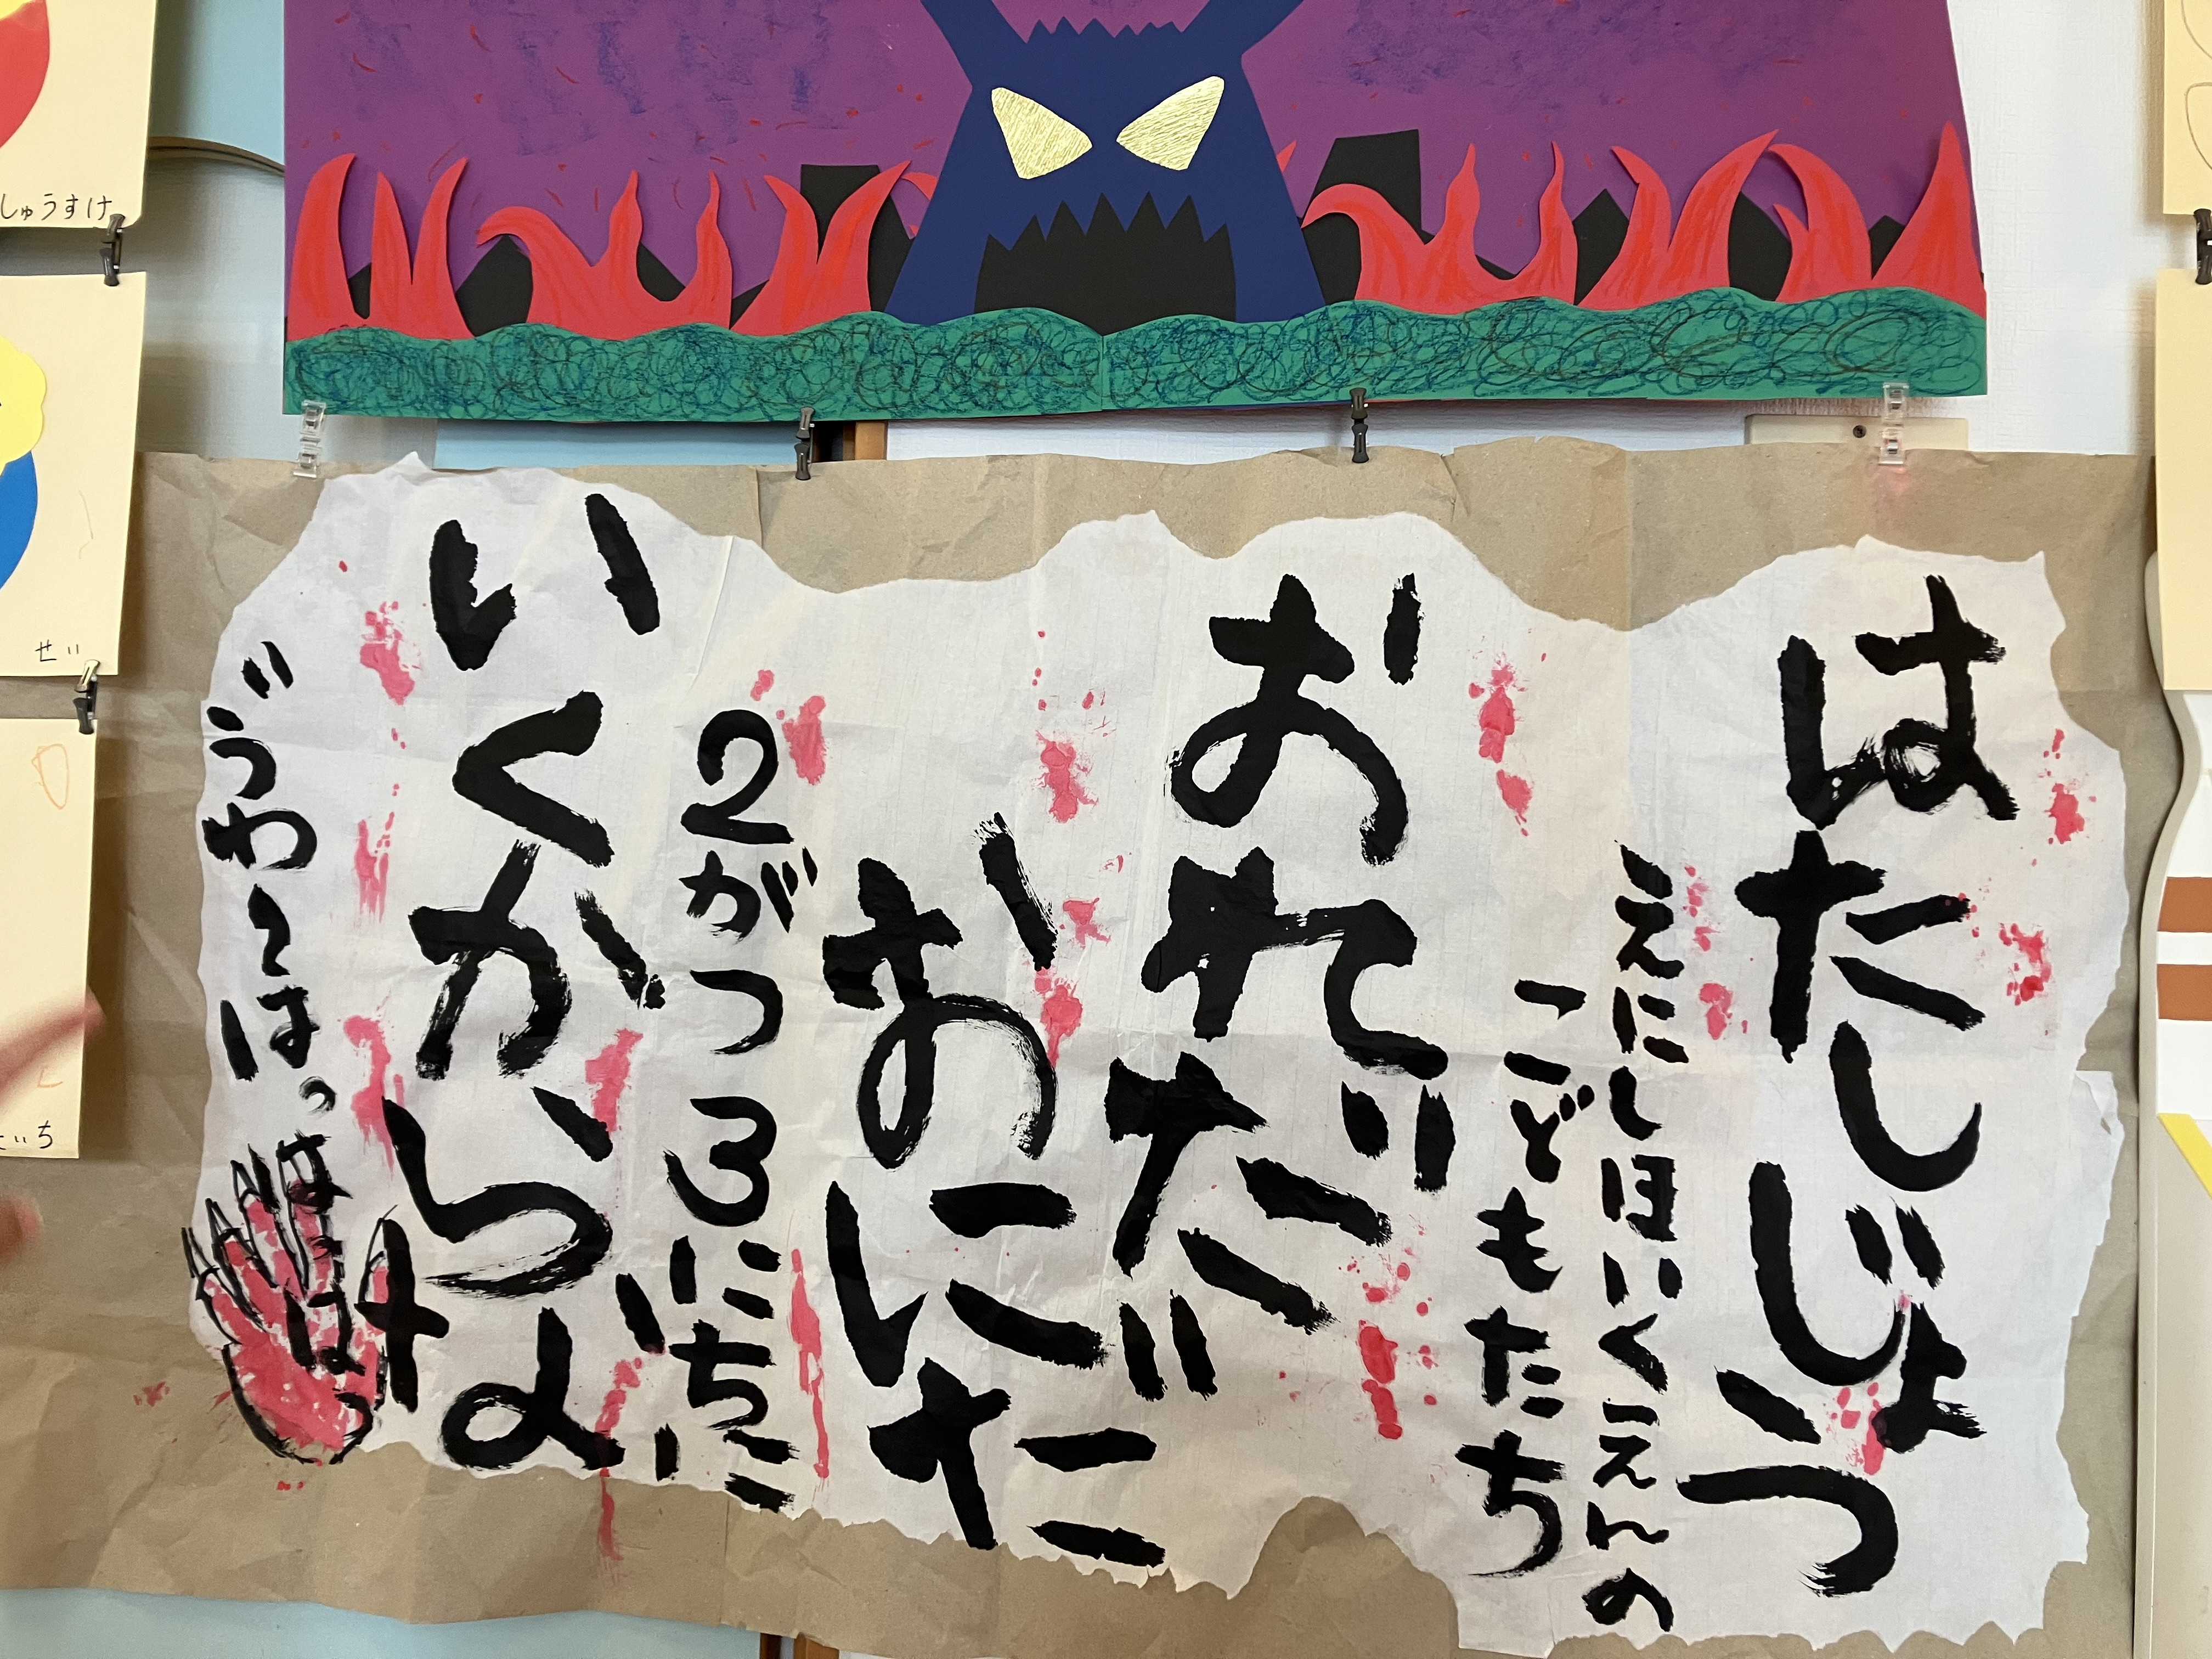 はたしじょう
えにしほいくえんの
こどもたち
おれだ
おにだ
2がつ3にちに
いくからな
"うわ〜はっはっはっ
しゅうすけ
せい